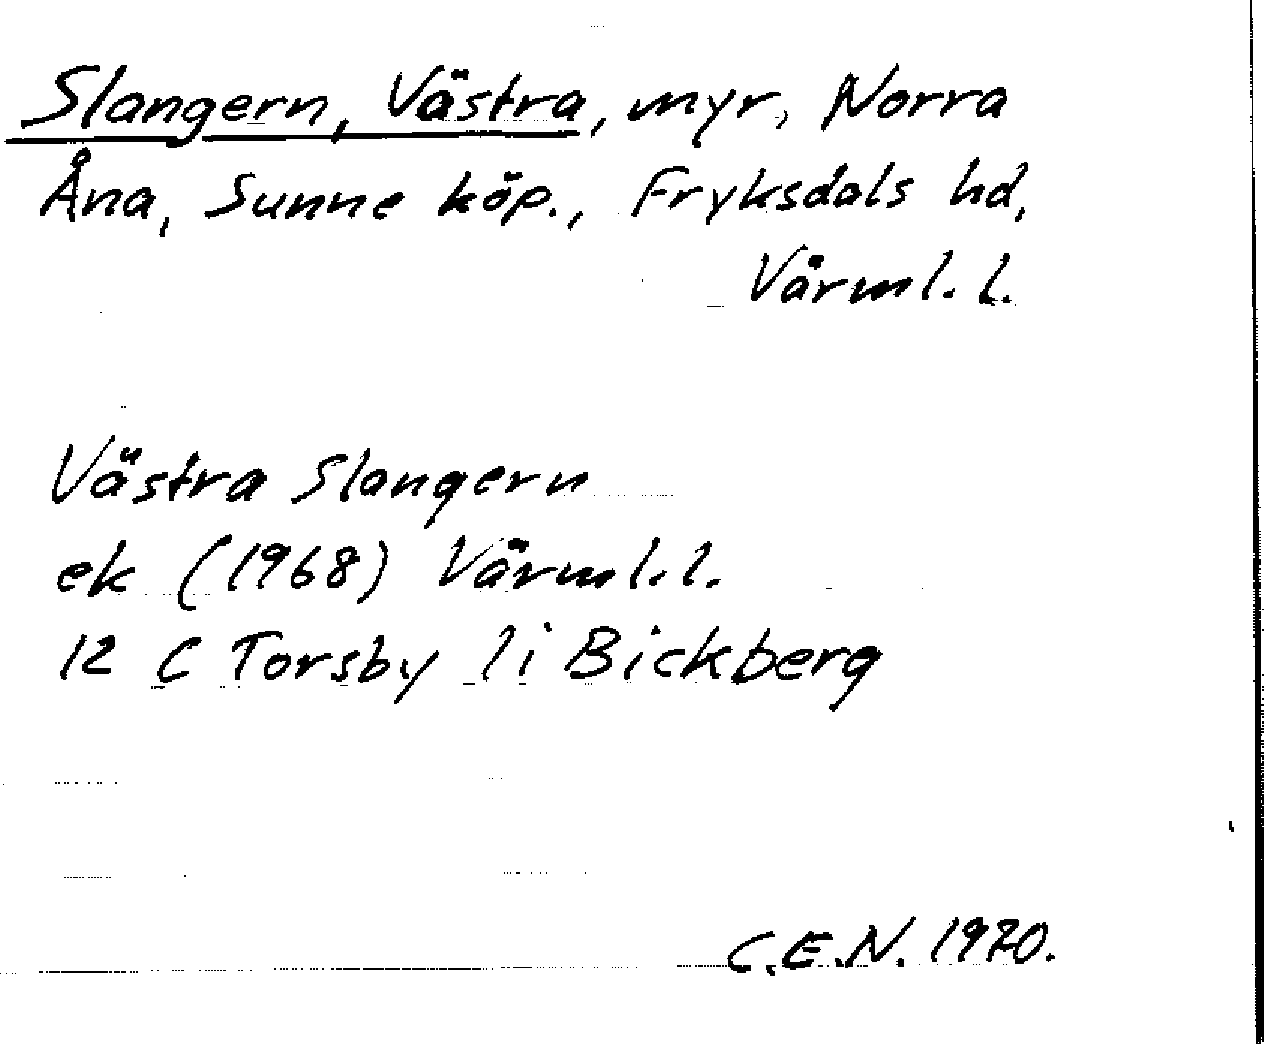 Slangern, Västra, myr, Norra
Åna, Sunne köp., Fryksdals hd,
Värml. l.
Västra Slangern
ek (1968) Värml. l.
12 C Torsby 1i Bickberg
C.E.N. 1970.